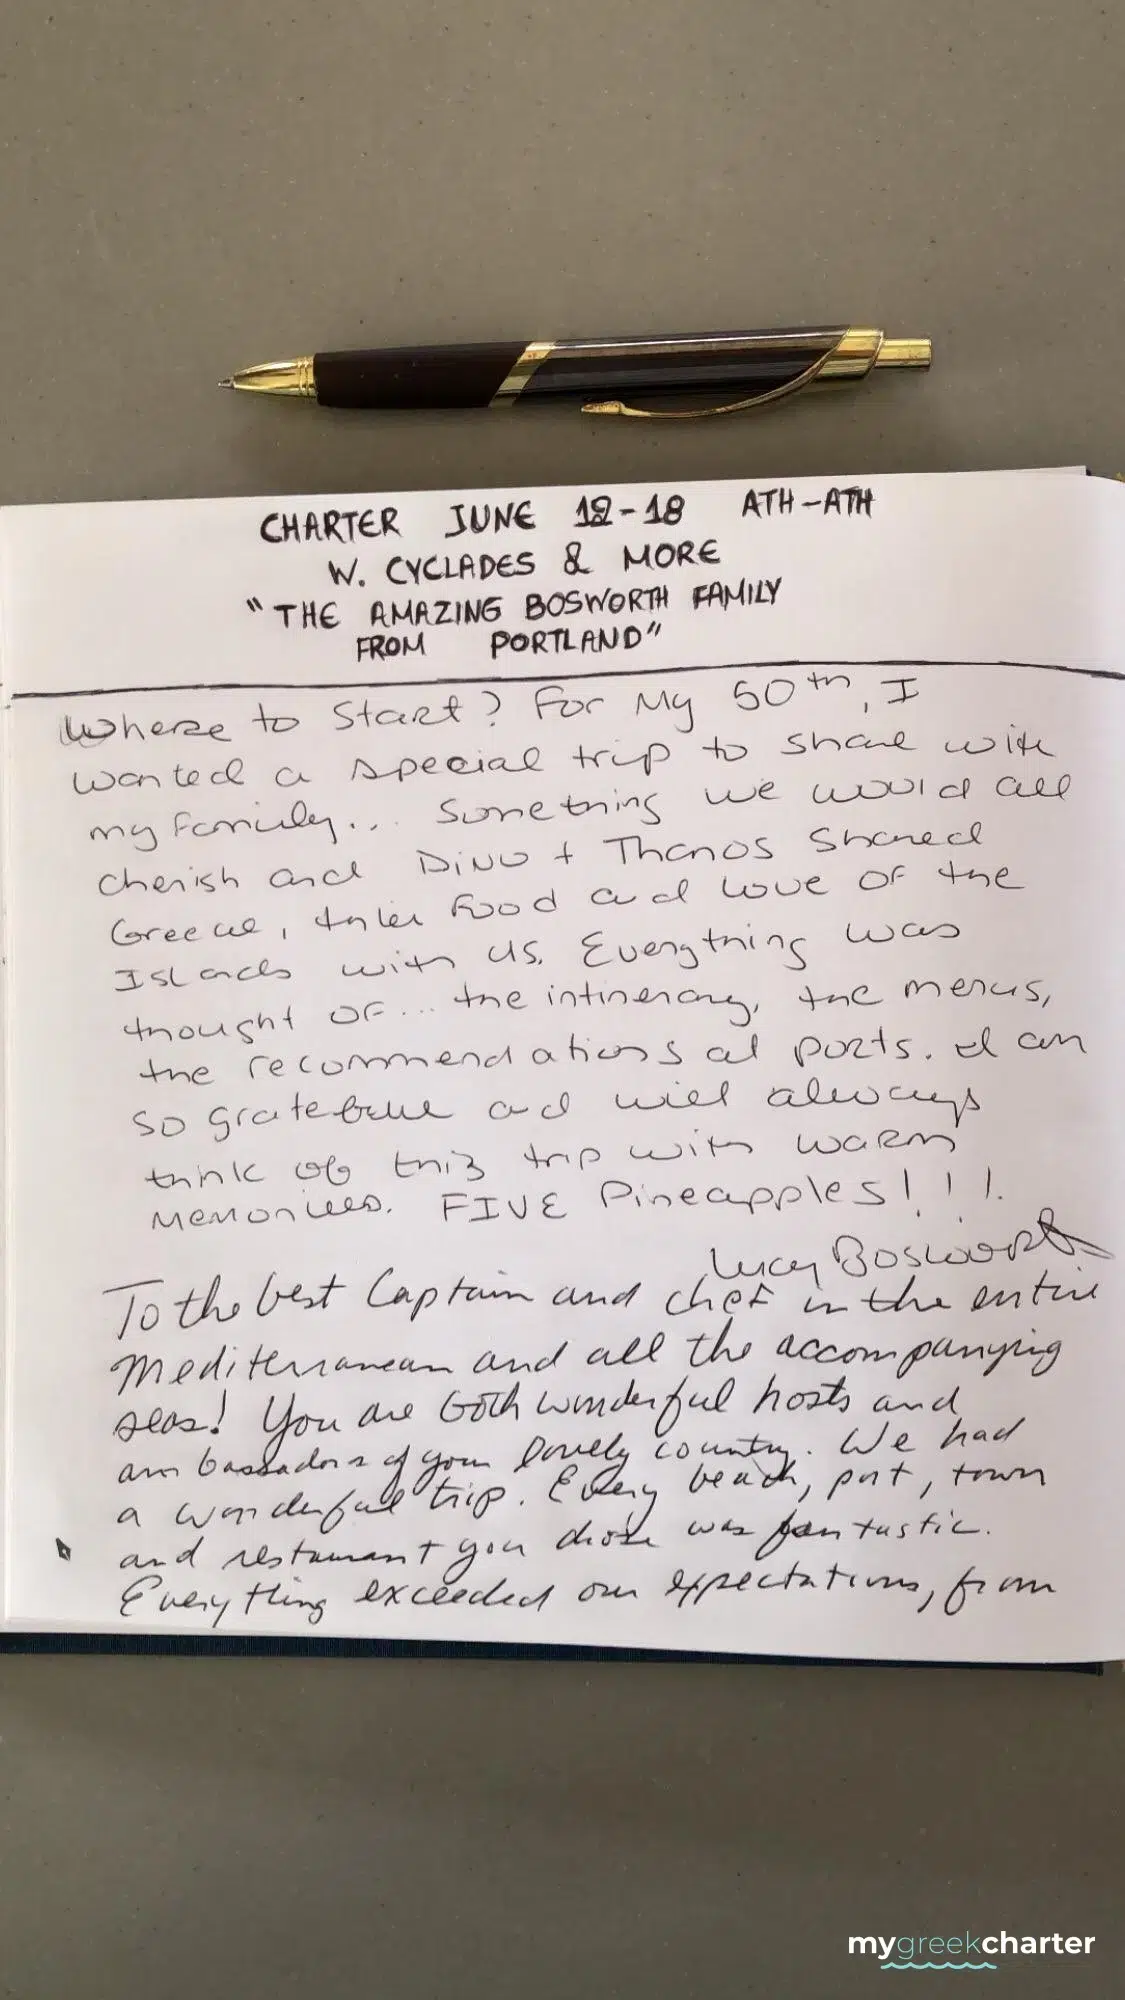 CHARTER JUNE 12-18 ATH-ATH
W. CYCLADES & MORE
"THE AMAZING BOSWORTH FAMILY
FROM PORTLAND"
Where to Start? For My 50th, I
wanted a special trip to share with
my family... Something we would all
cherish and Dino + Thanos shared
Greece, their food and love of the
Islands with us. Everything was
thought of... the intinerary, the menus,
the recommendations at ports. I am
so grateful and will always
think of this trip with warm
Memories. FIVE Pineapples!!!
Lucy Bosworth
To the best Captain and chef in the entire
Mediterranean and all the accompanying
seas! You are both wonderful hosts and
ambassadors of your lovely country. We had
a wonderful trip. Every beach, port, town
and restaurant you chose was fantastic.
Everything exceeded our expectations, from
mygreekcharter